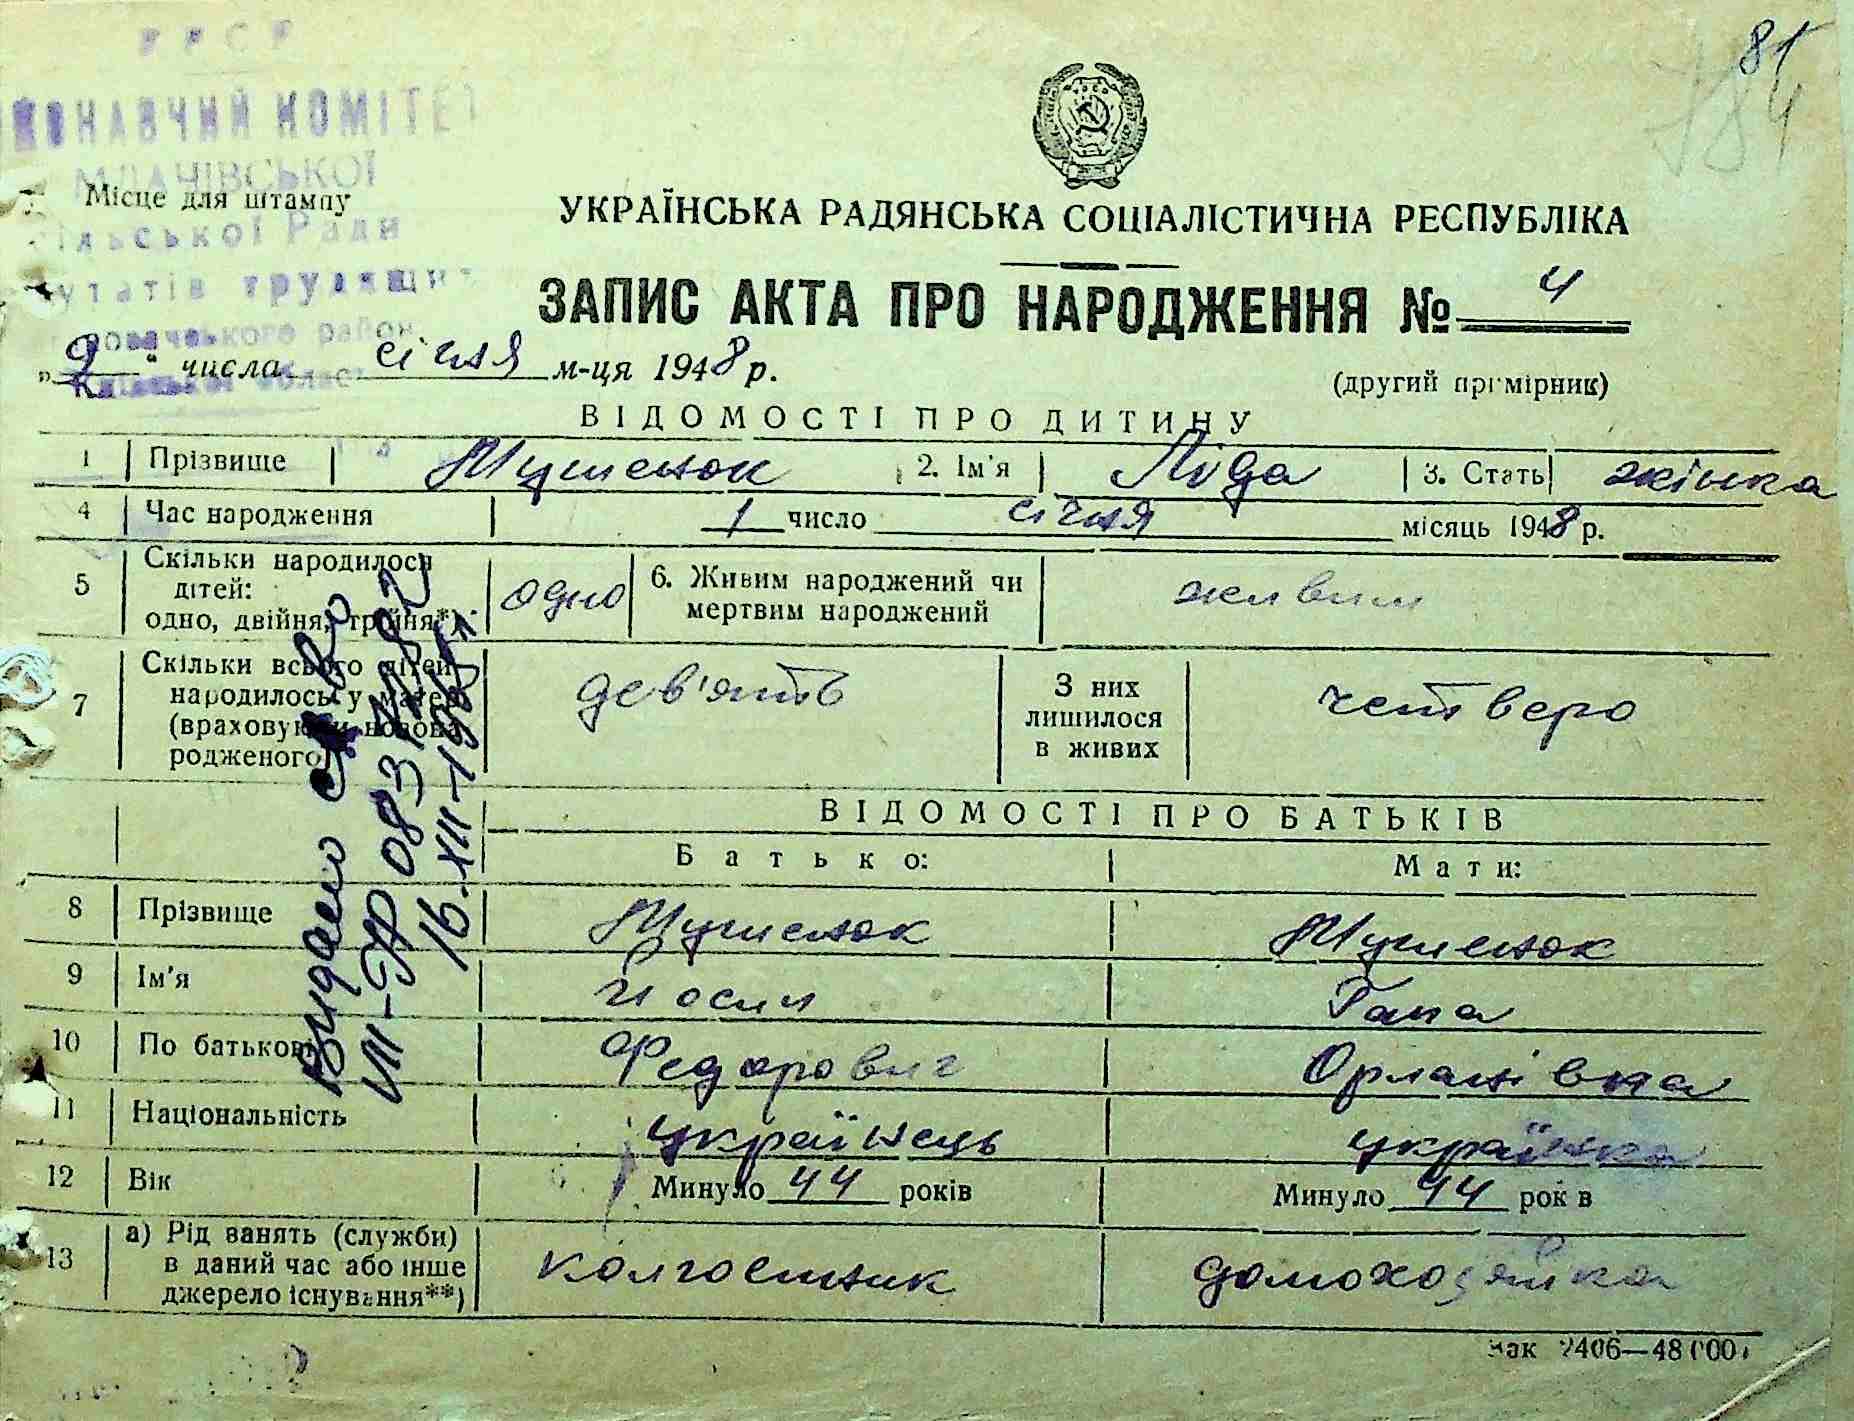 УРСР
81
ВИКОНАВЧИЙ КОМІТЕТ
МЛАЧІВСЬКОЇ
Місце для штампу
сільської Ради
УКРАЇНСЬКА РАДЯНСЬКА СОЦІАЛІСТИЧНА РЕСПУБЛІКА
депутатів трудящих
ЗАПИС АКТА ПРО НАРОДЖЕННЯ № 4
„9“ числа січня м-ця 1948 р.
(другий примірник)
ВІДОМОСТІ ПРО ДИТИНУ
1 Прізвище 2. Ім'я Ліда 3. Стать жінка
4 Час народження 1 число січня місяць 1948 р.
5 Скільки народилося дітей: одно, двійня, тройня*). одно 6. Живим народжений чи мертвим народжений живим
7 Скільки всього дітей народилось у матері (враховуючи новонародженого) дев'ять З них лишилося в живих четверо
ВІДОМОСТІ ПРО БАТЬКІВ
Батько: Мати:
8 Прізвище
9 Ім'я Йосип Гапа
10 По батькові Федорович
11 Національність українець українка
12 Вік Минуло 44 років Минуло 44 років
13 а) Рід занять (служби) в даний час або інше джерело існування**) колгоспник домохозяйка
Видано
16-XII-1965
Зак 2406—48 000